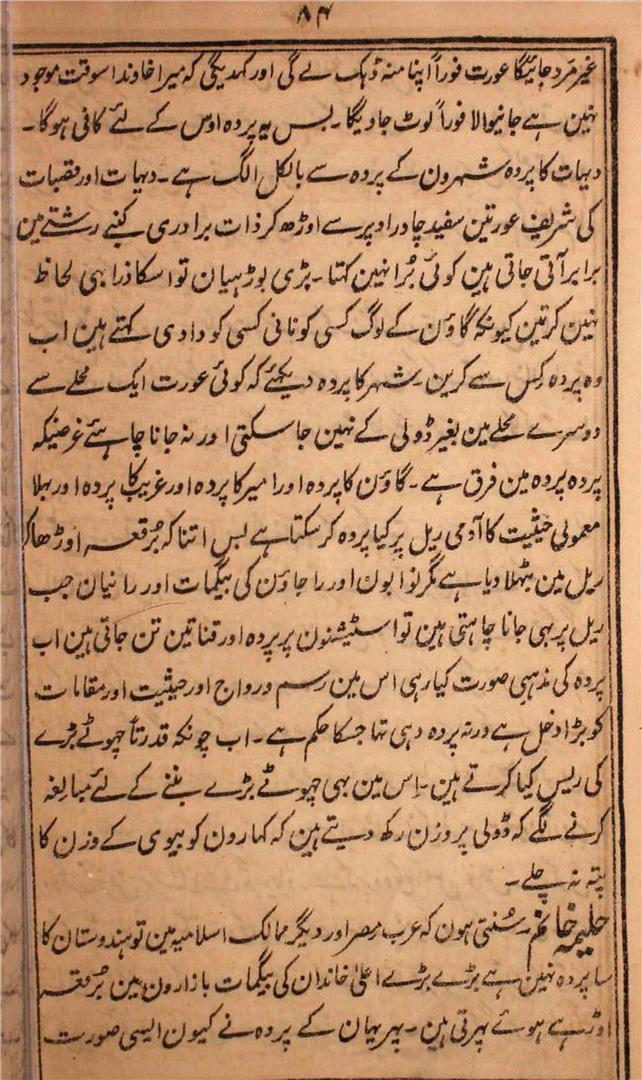 ۸۴
غیر مرد جائیگا عورت فوراً اپنا منہ ڈہک لے گی اور کہدیگی کہ میرا خاوند اسوقت موجود
نہین ہے جانیوالا فوراً لوٹ جاویگا۔ بس یہ پردہ اوس کے لئے کافی ہوگا۔
دیہات کا پردہ شہرون کے پردہ سے بالکل الگ ہے۔ دیہات اور قصبات
کی شریف عورتین سفید چادر اوپر سے اوڑھ کر ذات برادری کنبے رشتے مین
برابر آتی جاتی ہین کوئی بُرا نہین کہتا۔ بڑی بوڑہیان تو اسکا ذرا بہی لحاظ
نہین کرتین کیونکہ گاؤن کے لوگ کسی کو نانی کسی کو دادی کہتے ہین اب
وہ پردہ کِس سے کرین۔ شہر کا پردہ دیکہئے کہ کوئی عورت ایک محلے سے
دوسرے محلے مین بغیر ڈولی کے نہین جا سکتی اور نہ جانا چاہئے غرضیکہ
پردہ پردہ مین فرق ہے۔ گاؤن کا پردہ اور امیر کا پردہ اور غریب کا پردہ اور بہلا
معمولی حیثیت کا آدمی ریل پر کیا پردہ کر سکتا ہے بس اتنا کہ بُرقعہ اوڑھا کر
ریل مین بٹہلا دیا ہے مگر نوابون اور راجاؤن کی بیگمات اور رانیان جب
ریل پر بہی جانا چاہتی ہین تو اسٹیشنون پر پردہ اور قناتین تن جاتی ہین اب
پردہ کی مذہبی صورت کیا رہی اس مین رسم و رواج اور حیثیت اور مقامات
کو بڑا دخل ہے ورنہ پردہ وہی تہا جسکا حکم ہے۔ اب چونکہ قدرتاً چہوٹے بڑے
کی ریس کیا کرتے ہین۔ اِس مین بہی چہوٹے بڑے بننے کے لئے مبالغہ
کرنے لگے کہ ڈولی پر وزن رکھ دیتے ہین کہ کہارون کو بیوی کے وزن کا
پتہ نہ چلے۔
حلیمہ خانم۔ سُنتی ہون کہ عرب مصر اور دیگر ممالک اسلامیہ مین تو ہندوستان کا
سا پردہ نہین ہے بڑے بڑے اعلیٰ خاندان کی بیگمات بازارون مین بُرقعہ
اوڑہے ہوئے پہرتی ہین۔ پہر یہان کے پردہ نے کیون ایسی صورت